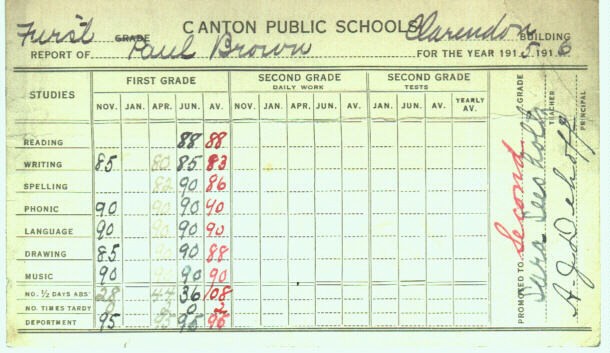 First GRADE CANTON PUBLIC SCHOOLS Clarendon BUILDING
REPORT OF Paul Brown FOR THE YEAR 1915 1916
STUDIES FIRST GRADE SECOND GRADE DAILY WORK SECOND GRADE TESTS
NOV. JAN. APR. JUN. AV. NOV. JAN. APR. JUN. AV. JAN. JUN. AV. YEARLY AV.
READING 88 88
WRITING 85 80 85 83
SPELLING 82 90 86
PHONIC 90 90 90 90
LANGUAGE 90 90 90 90
DRAWING 85 90 90 88
MUSIC 90 90 90 90
NO. ½ DAYS ABS 28 44 36 108
NO. TIMES TARDY 0 2
DEPORTMENT 95 95 95 95
PROMOTED TO Second GRADE
Sara TEACHER
A. J. Dehoff PRINCIPAL